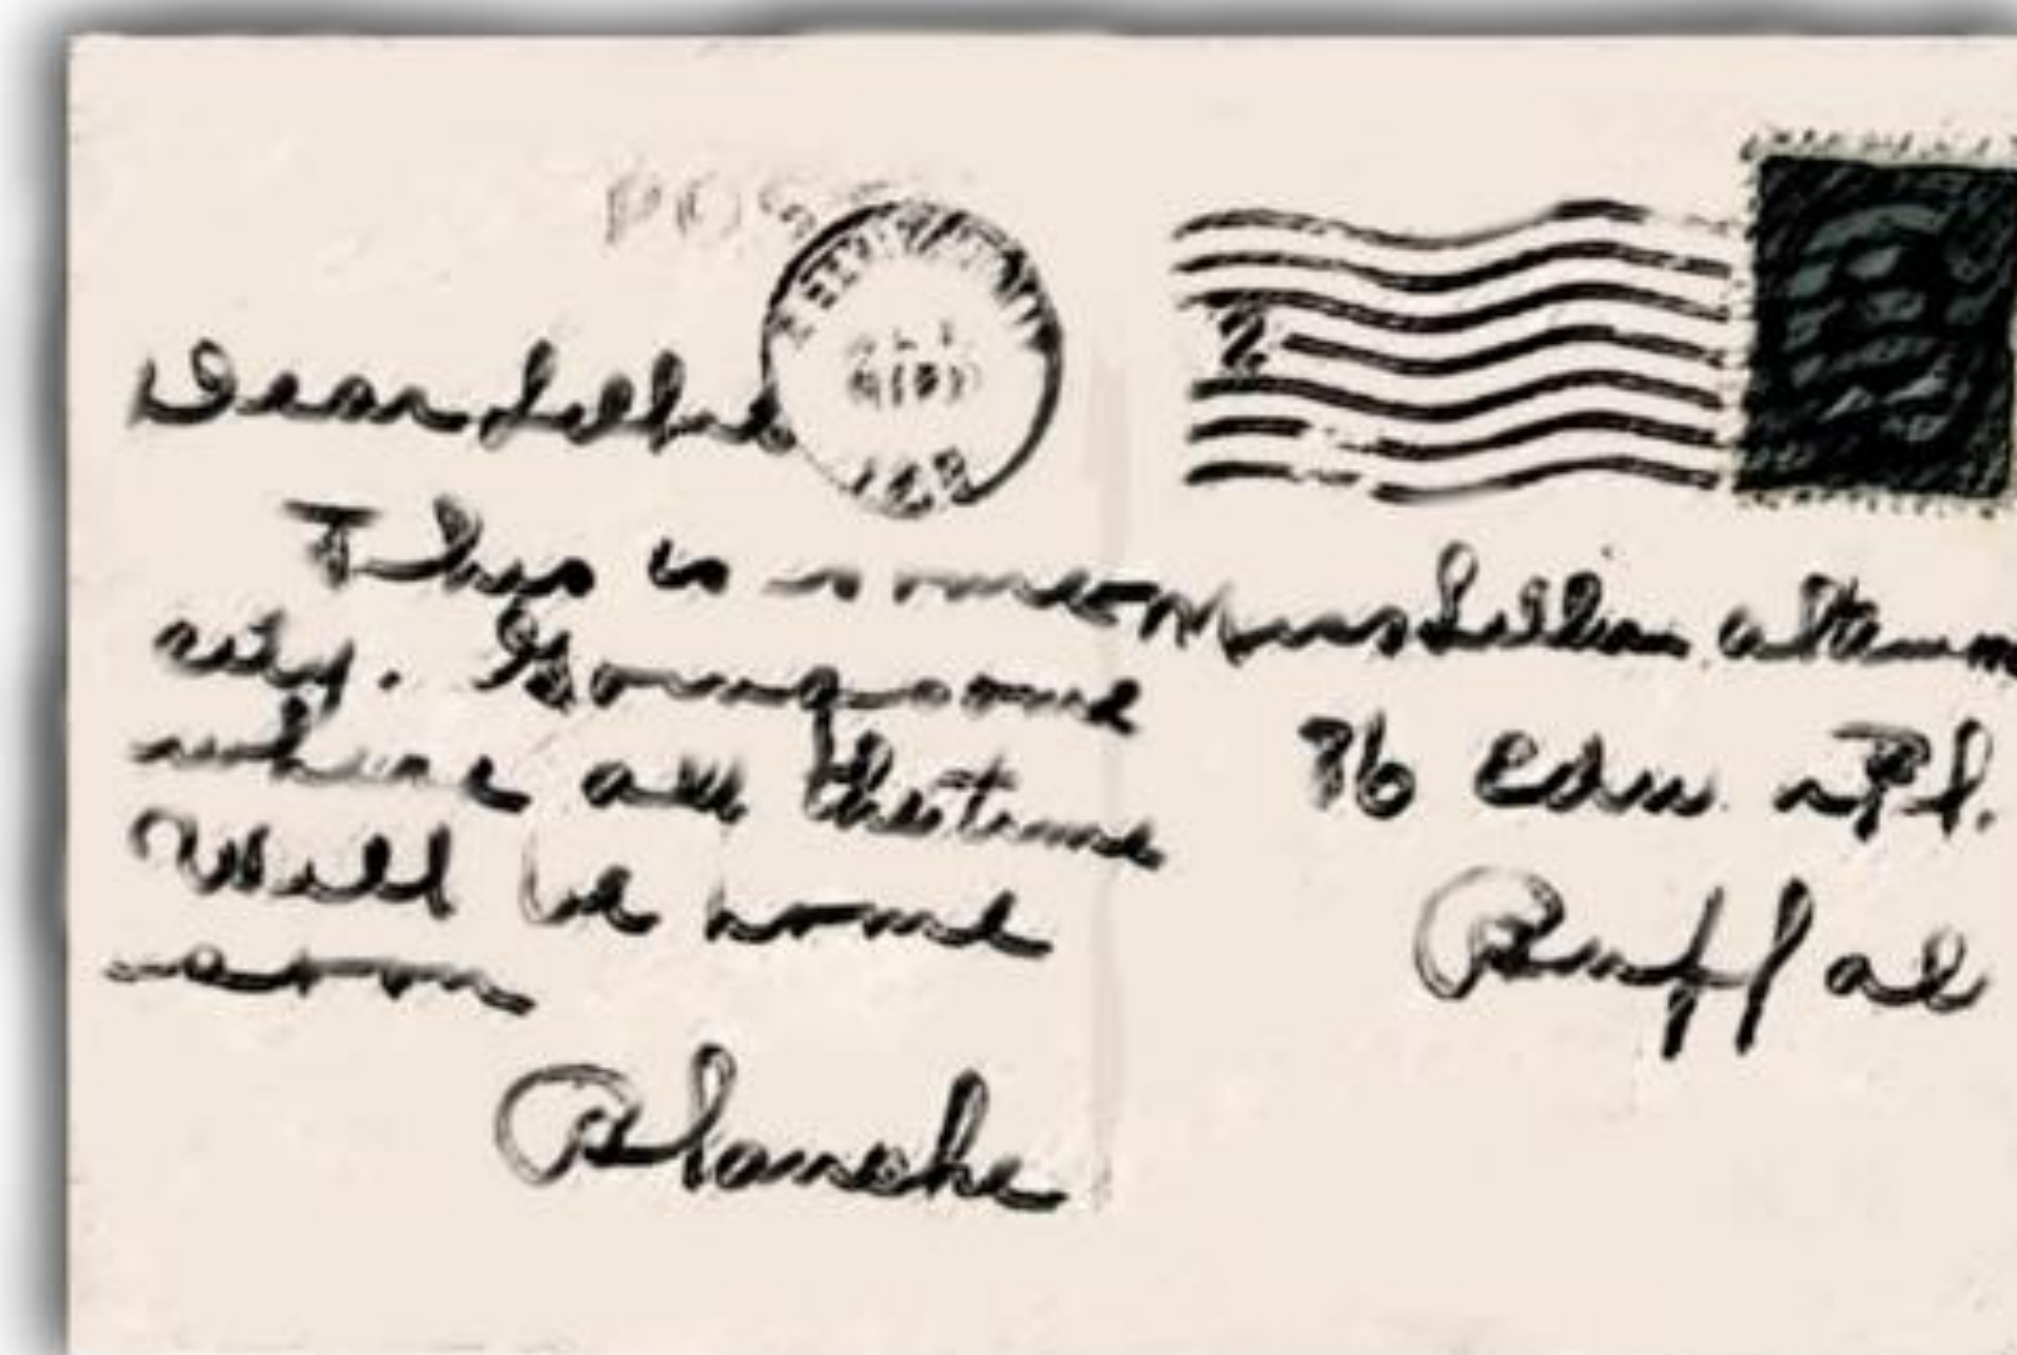 POST
Dear Lillie
This is some
city. Going some
where all the time
Will be home
soon
Blanche
2
Miss Lillian
76
Buffal